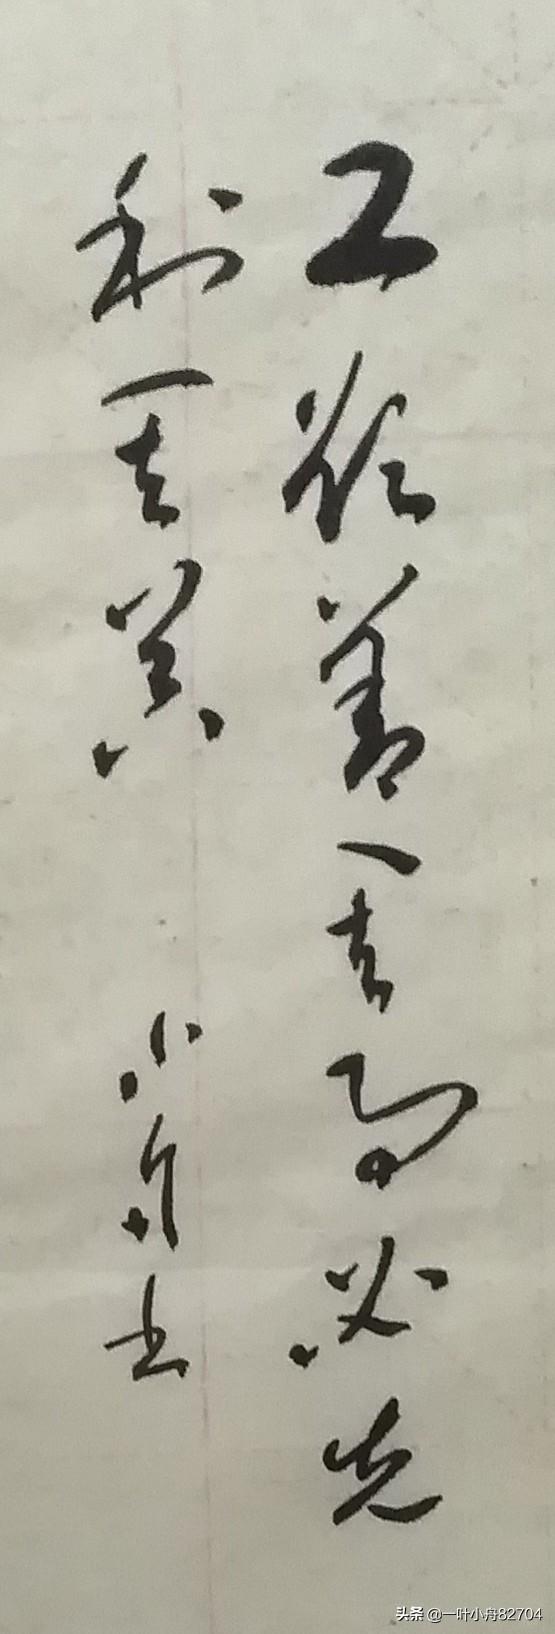 工欲善其事必先
利其器
小舟书
头条 @一叶小舟82704